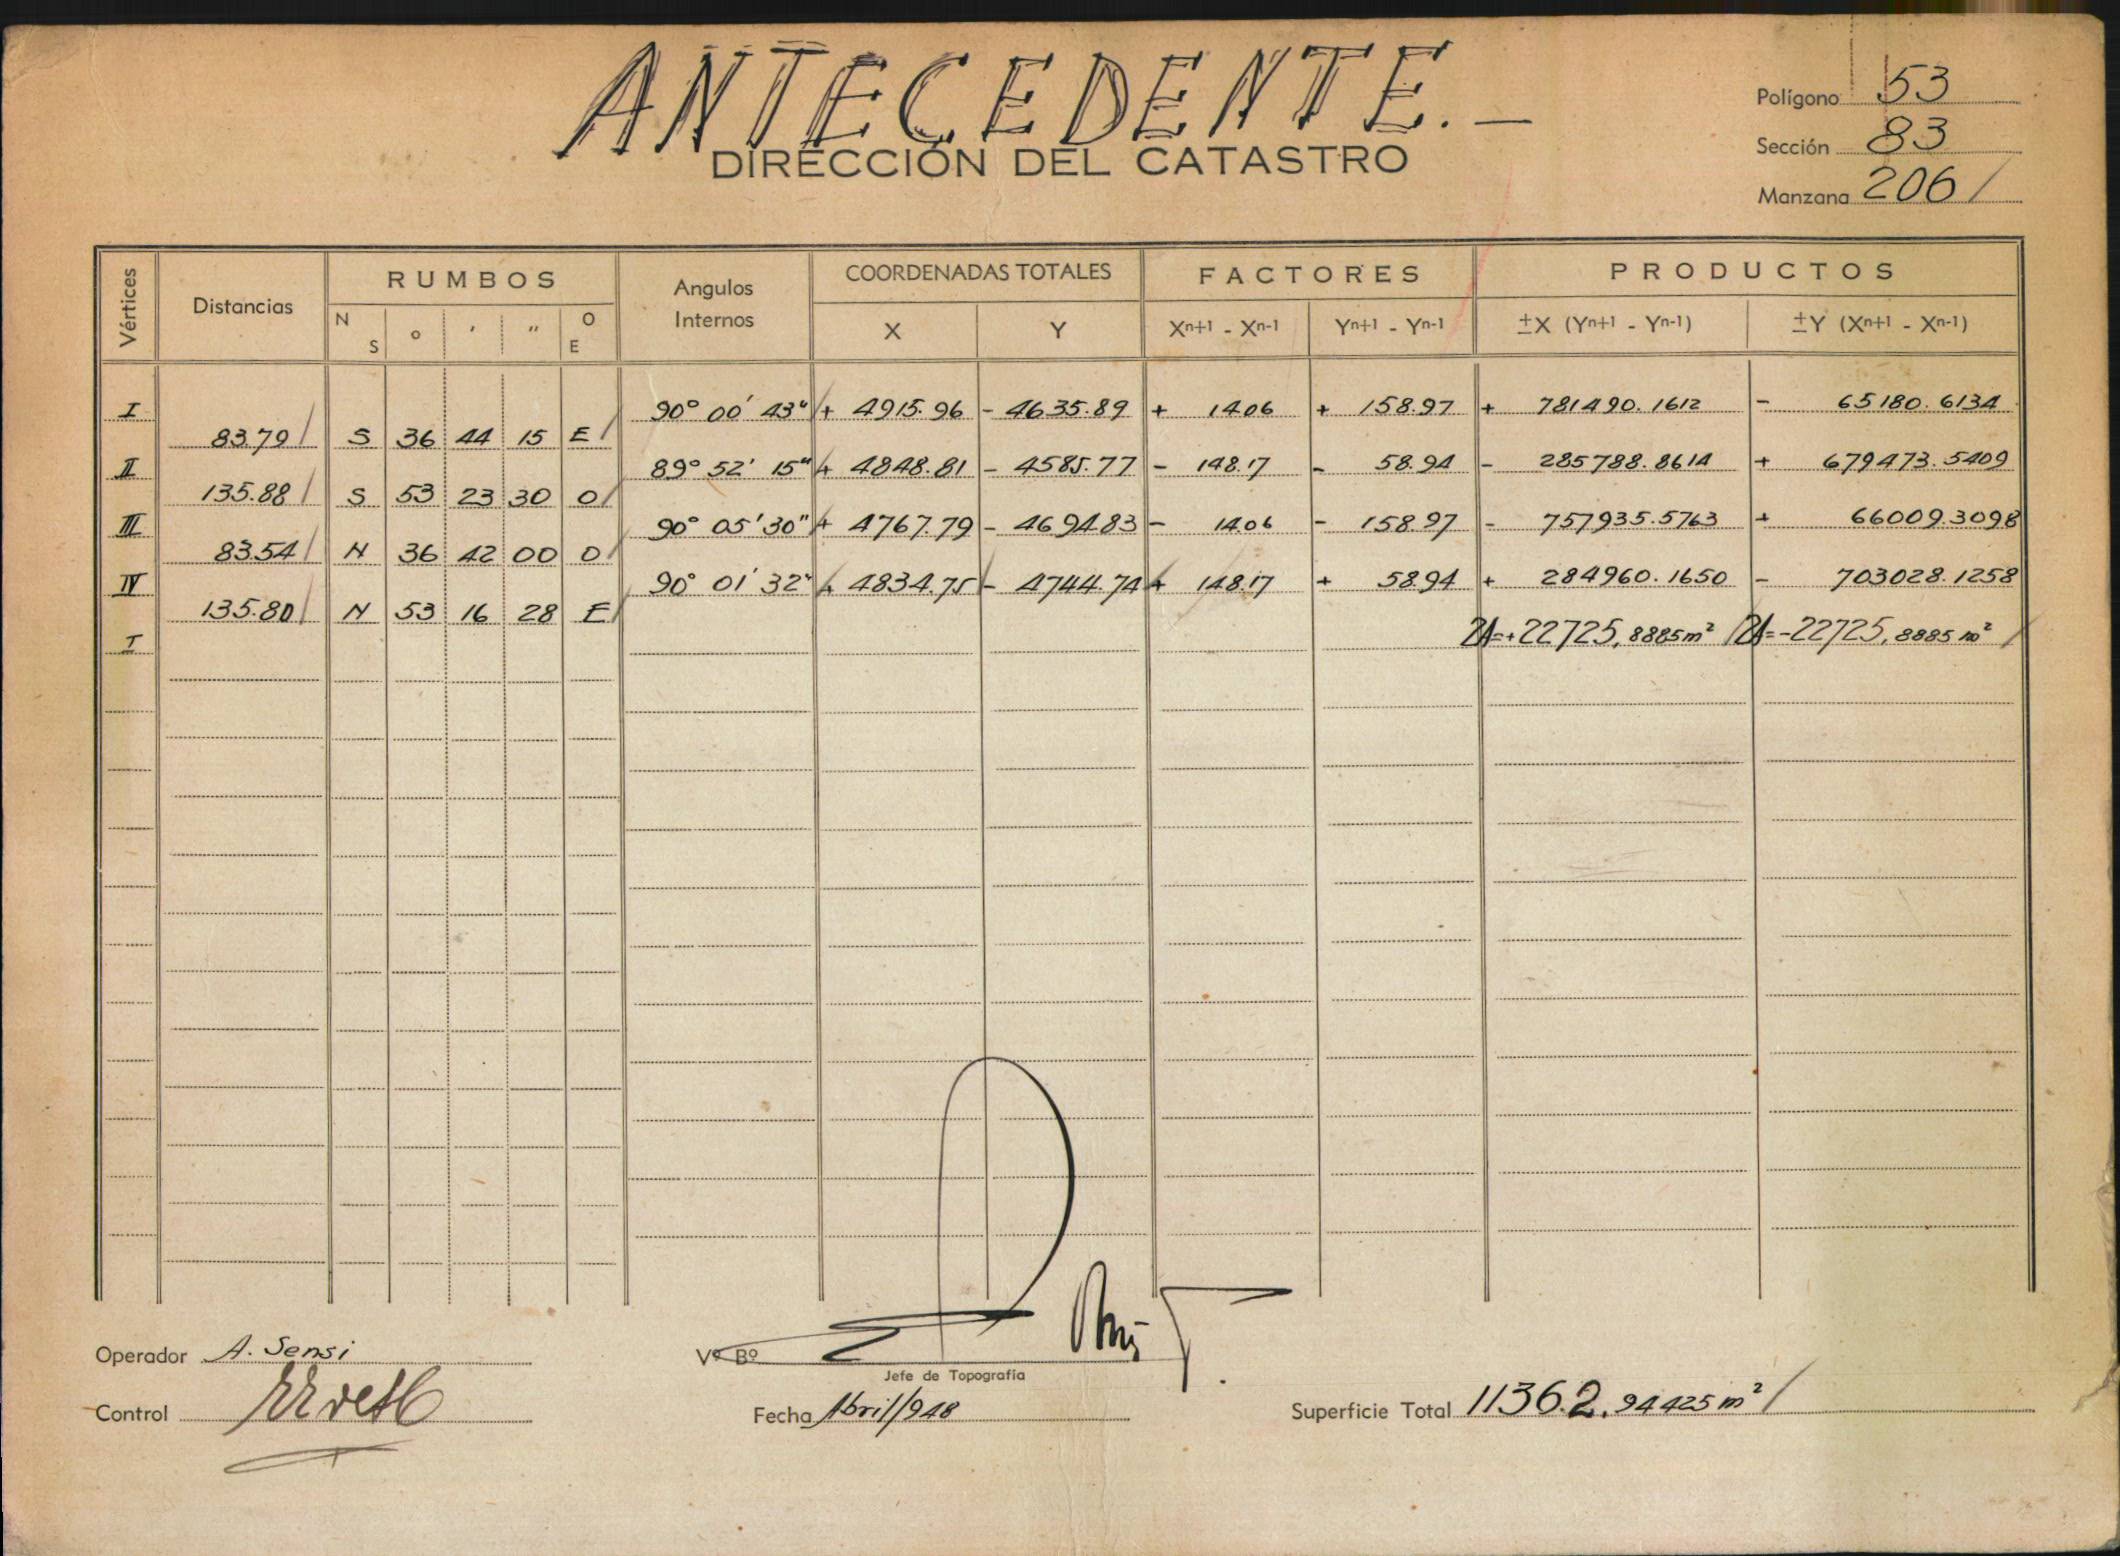 ANTECEDENTE.-
DIRECCIÓN DEL CATASTRO
Polígono 53
Sección 83
Manzana 206
Vértices Distancias RUMBOS Angulos Internos COORDENADAS TOTALES FACTORES PRODUCTOS
N S o ' " O E X Y Xn+1 - Xn-1 Yn+1 - Yn-1 ±X (Yn+1 - Yn-1) ±Y (Xn+1 - Xn-1)
I 90° 00' 43" + 4915.96 - 4635.89 + 14.06 + 158.97 + 781490.1612 - 65180.6134
83.79 S 36 44 15 E
II 89° 52' 15" + 4848.81 - 4585.77 - 148.17 - 58.94 - 285788.8614 + 679473.5409
135.88 S 53 23 30 O
III 90° 05' 30" + 4767.79 - 4694.83 - 14.06 - 158.97 - 757935.5763 + 66009.3098
83.54 N 36 42 00 O
IV 90° 01' 32" + 4834.75 - 4744.74 + 148.17 + 58.94 + 284960.1650 - 703028.1258
135.80 N 53 16 28 E
I 2A=+22725,8885m² 2A=-22725,8885m²
Operador A. Sensi
Vº Bº
Jefe de Topografía
Control
Fecha Abril/948
Superficie Total 11362.94425m²